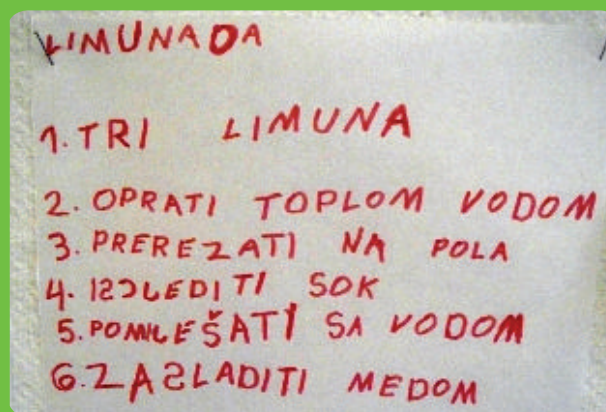 LIMUNADA
1. TRI LIMUNA
2. OPRATI TOPLOM VODOM
3. PREREZATI NA POLA
4. ISCJEDITI SOK
5. POMIJEŠATI SA VODOM
6. ZASLADITI MEDOM